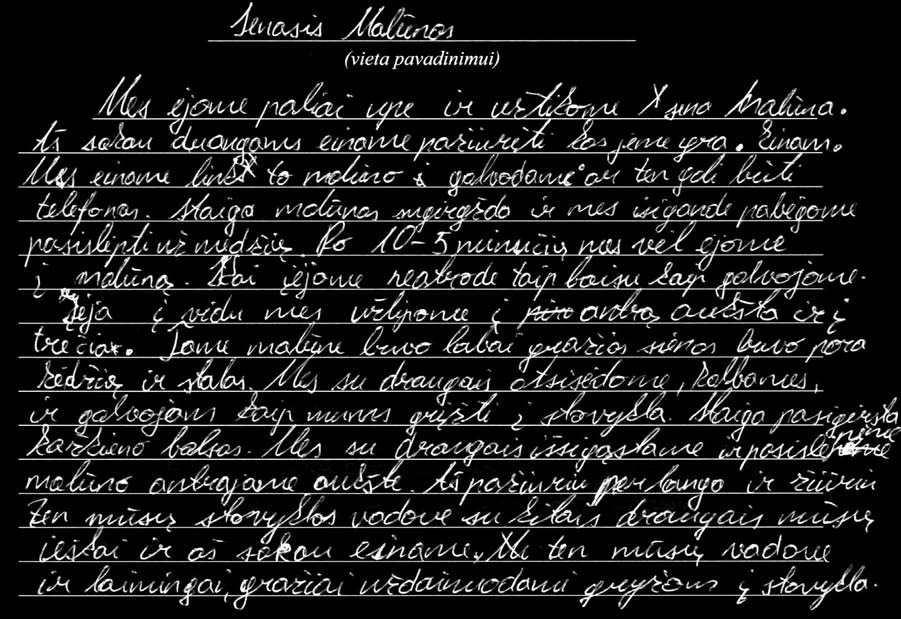 Senasis Malūnas
(vieta pavadinimui)
Mes ėjome paliai upe ir užtikome X sena malūna.
Aš sakau draugams einame pažiurėti kas jeme yra. Einam.
Mes einame link to malūno ir galvodami ar ten gali būti
telefonas. Staiga malūnas sugirgždo ir mes išigandę pabėgome
pasislėpti už medžių. Po 10-5 minučių mes vėl ėjome
į malūną. Kai įėjome neatrodė taip baisu kaip galvojome.
Įėja į vidu mes užlipome į antrą aukšta ir į
trečia. Jame malūne buvo labai gražios sienos buvo pora
kėdžių ir stalas. Mes su draugais atsisėdome, kalbamės,
ir galvojam kaip mums grįžti į stovykla. Staiga pasigirsta
kažkieno balsas. Mes su draugais išsigąstame ir pasislepiame
malūno antrajame aukšte. Aš pažiuriu per langa ir žiūriu
ten mūsų stovyklos vadovė su kitais draugais mūsų
ieškai ir aš sakau einame, ten mūsų vadovė
ir laimingai, gražiai uždainuodami gryžom į stovykla.